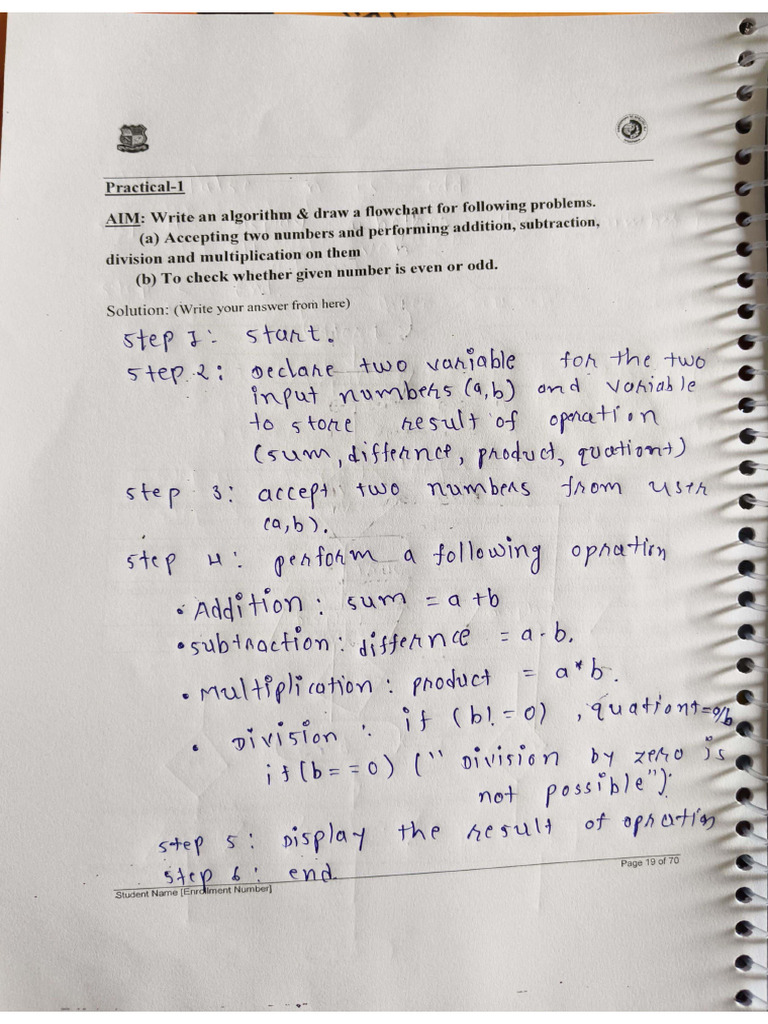 Practical-1
AIM: Write an algorithm & draw a flowchart for following problems.
(a) Accepting two numbers and performing addition, subtraction,
division and multiplication on them
(b) To check whether given number is even or odd.
Solution: (Write your answer from here)
Step 1: Start.
Step 2: Declare two variable for the two
input numbers (a,b) and variable
to store result of operation
(sum, differnce, product, quationt)
Step 3: accept two numbers from user
(a,b).
Step 4: perform a following opration
• Addition: sum = a+b
• subtraction: differnce = a-b.
• Multiplication: product = a*b.
• Division: if (b!=0), quationt=a/b
if(b==0) ("Division by zero is
not possible");
Step 5: Display the result of opration
Step 6: end.
Page 19 of 70
Student Name [Enrollment Number]